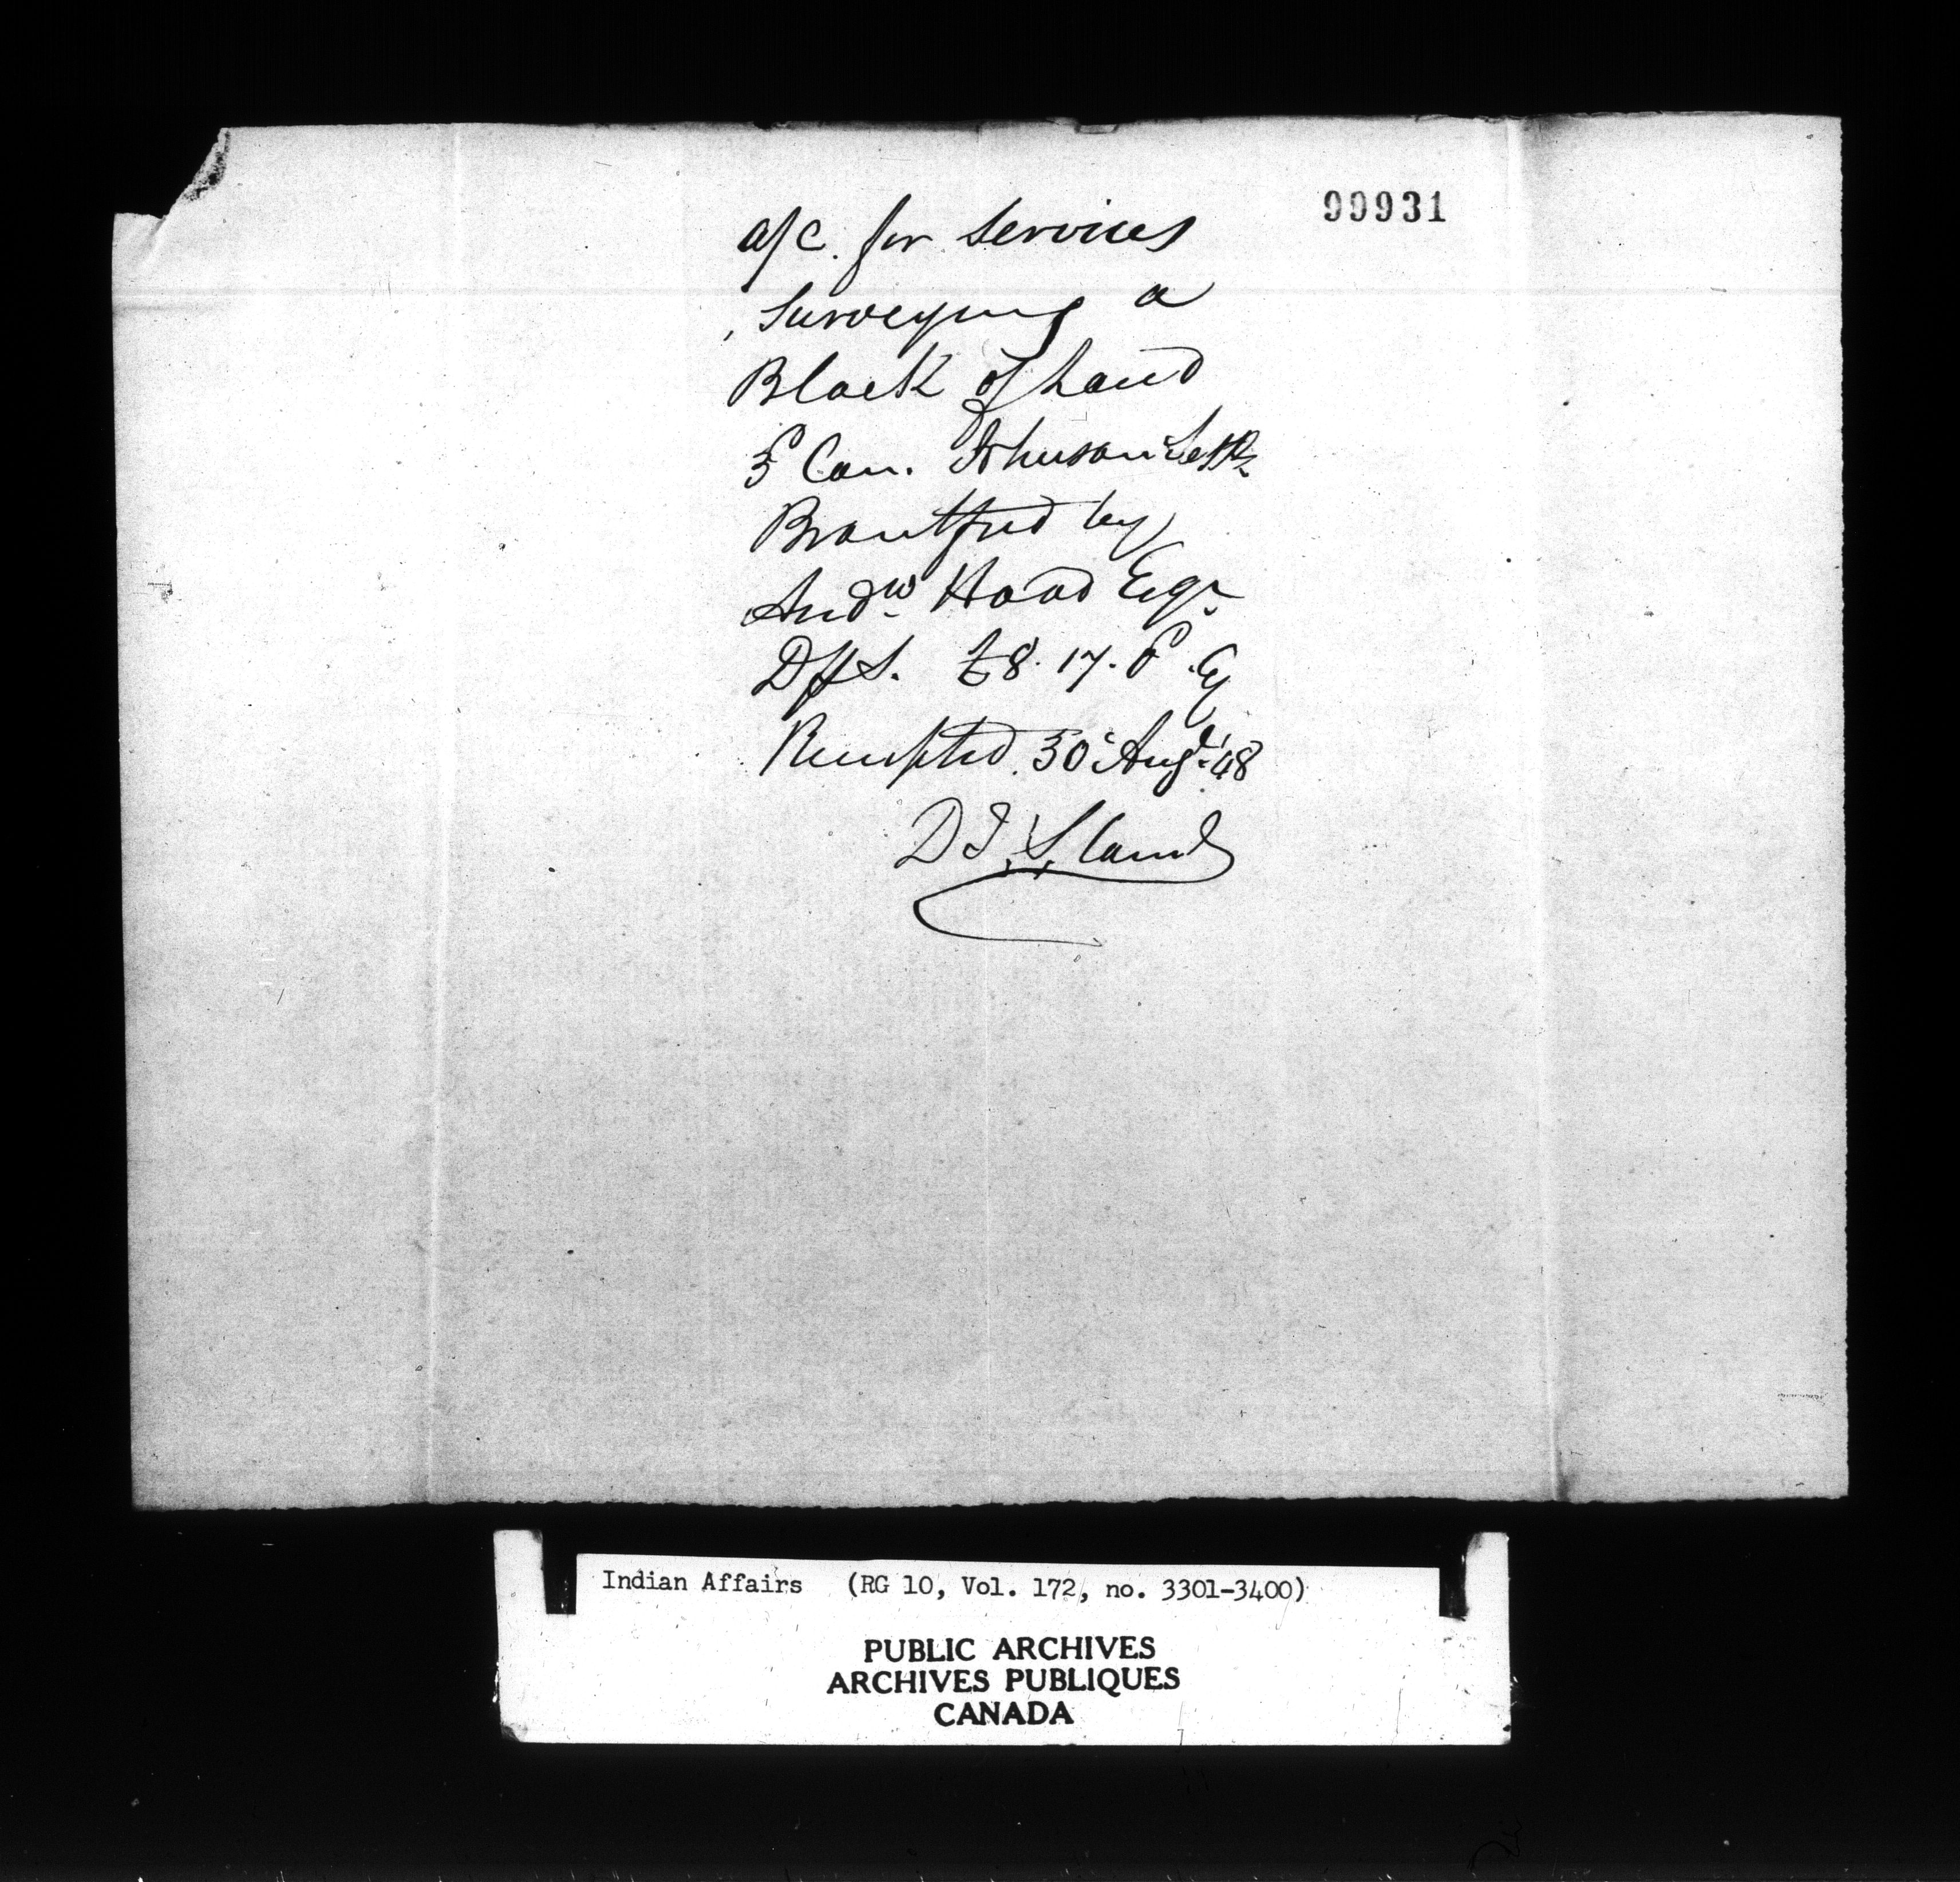 99931
a/c. for Services
Surveying a
Block of Land
3d Con. Johnson Settt
Brantford by
Andw Hood Esqr
DPS. £8. 17. 6 Cy
Receipted 30 Augt. '48
Indian Affairs (RG 10, Vol. 172, no. 3301-3400)
PUBLIC ARCHIVES
ARCHIVES PUBLIQUES
CANADA